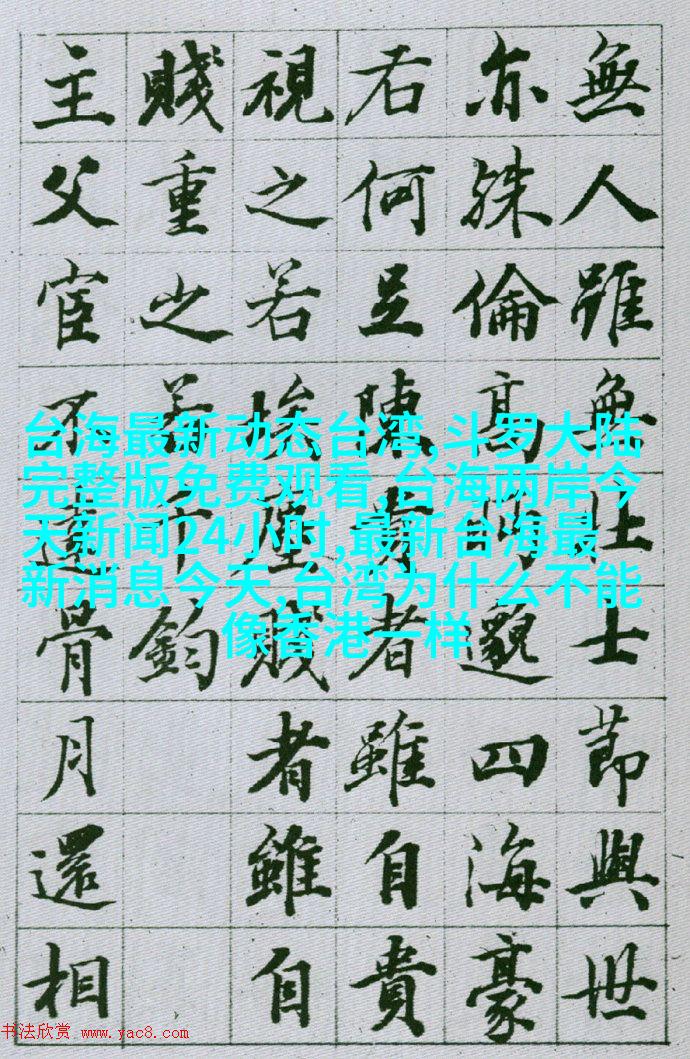 無人雖無壯士節與世
亦殊倫高眄邈四海豪
右何足陳貴者雖自貴
視之若埃塵賤者雖自
賤重之若千鈞
主父宦不達骨月還相
台海最新动态台湾,斗罗大陆
完整版免费观看,台海两岸今
天新闻24小时,最新台海最
新消息今天,台湾为什么不能
像香港一样
书法欣赏 www.yac8.com